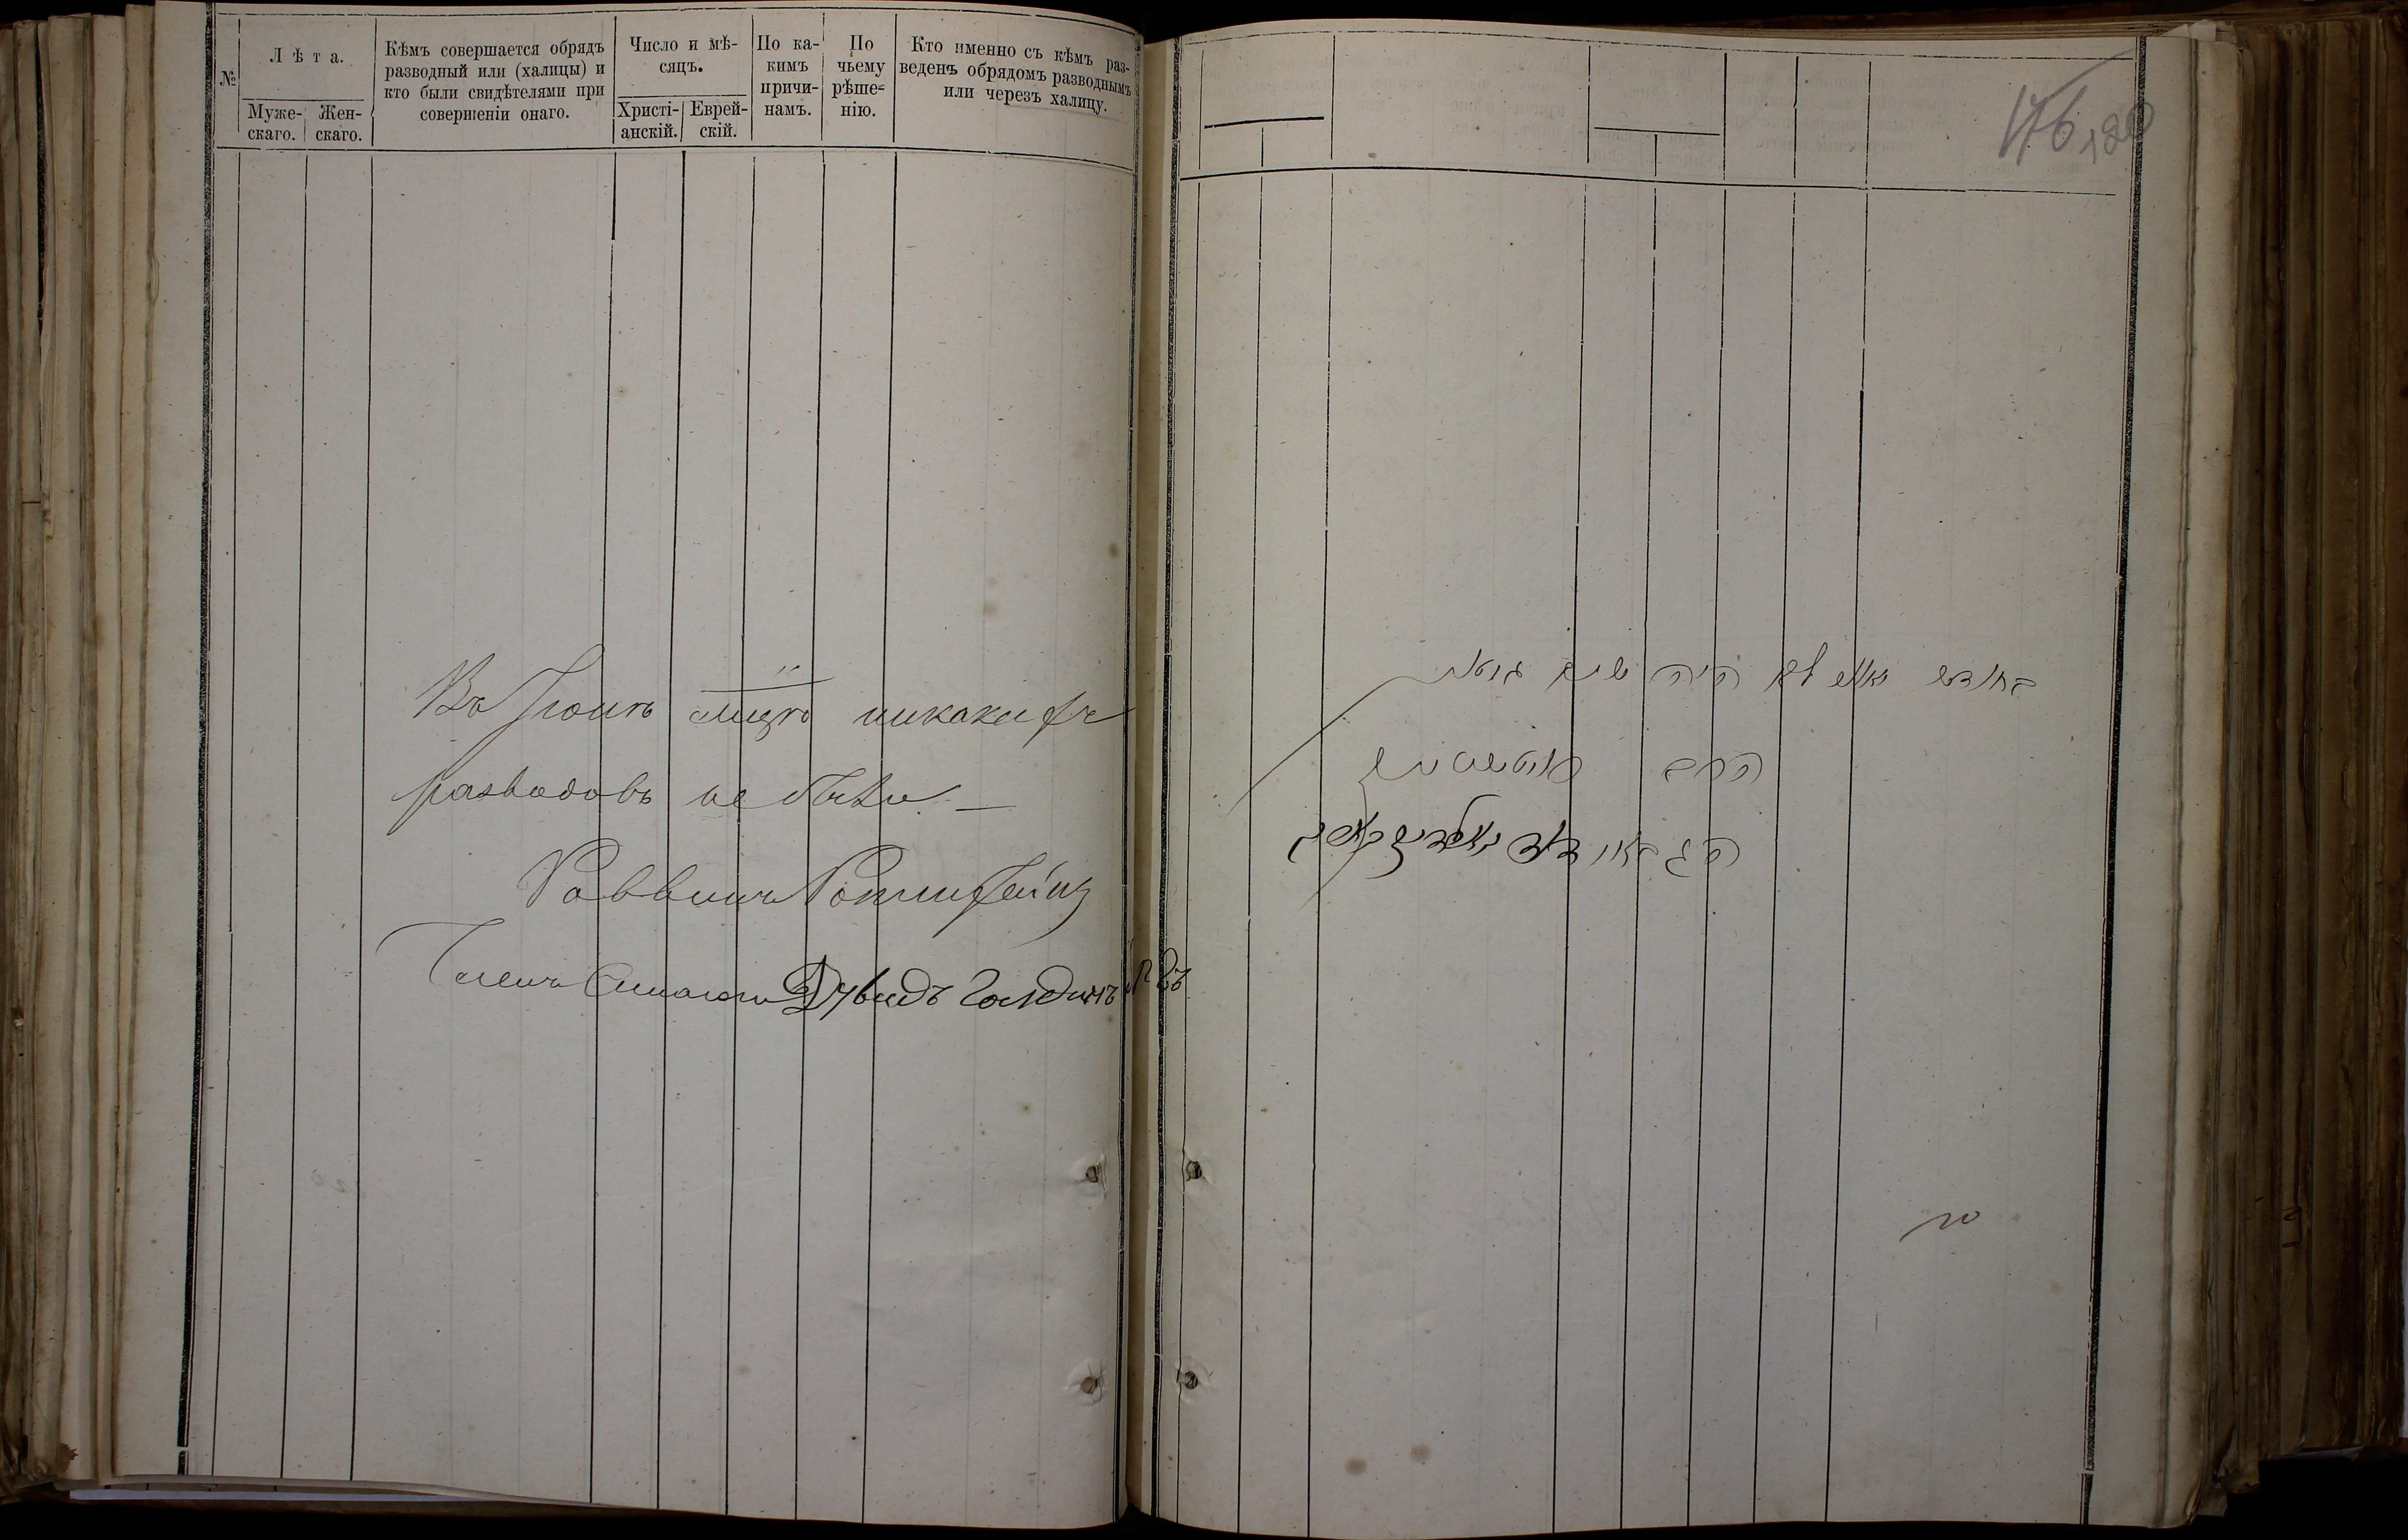 №
Лѣта.
Муже-
скаго.
Жен-
скаго.
Кѣмъ совершается обрядъ
разводный или (халицы) и
кто были свидѣтелями при
совершеніи онаго.
Число и мѣ-
сяцъ.
Христі-
анскій.
Еврей-
скій.
По ка-
кимъ
причи-
намъ.
По
чьему
рѣше=
нію.
Кто именно съ кѣмъ раз-
веденъ обрядомъ разводнымъ
или черезъ халицу.
Въ Іюнѣ мѣцѣ никакихъ
разводовъ не было. —
Раввинъ
Членъ Давидъ Голдинъ
176 120
בחדש יוני לא היה שום גט
הרב